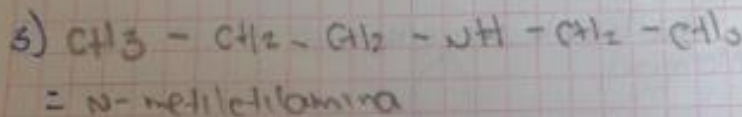 3) CH3 - CH2 - CH2 - NH - CH2 - CH3
= N-metiletilamina